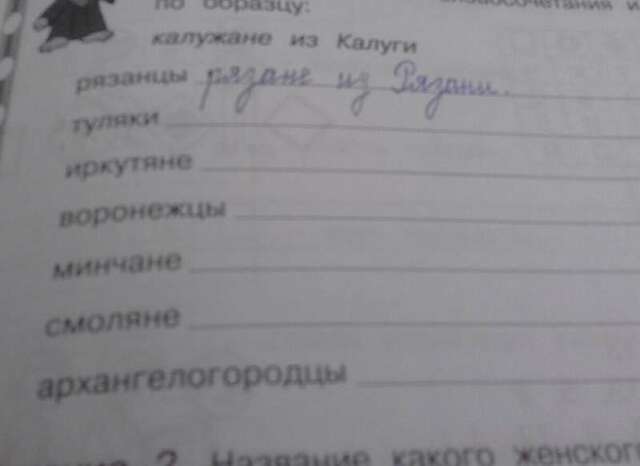 по образцу:
калужане из Калуги
рязанцы рязане из Рязани.
туляки
иркутяне
воронежцы
минчане
смоляне
архангелогородцы
2. Название какого женского